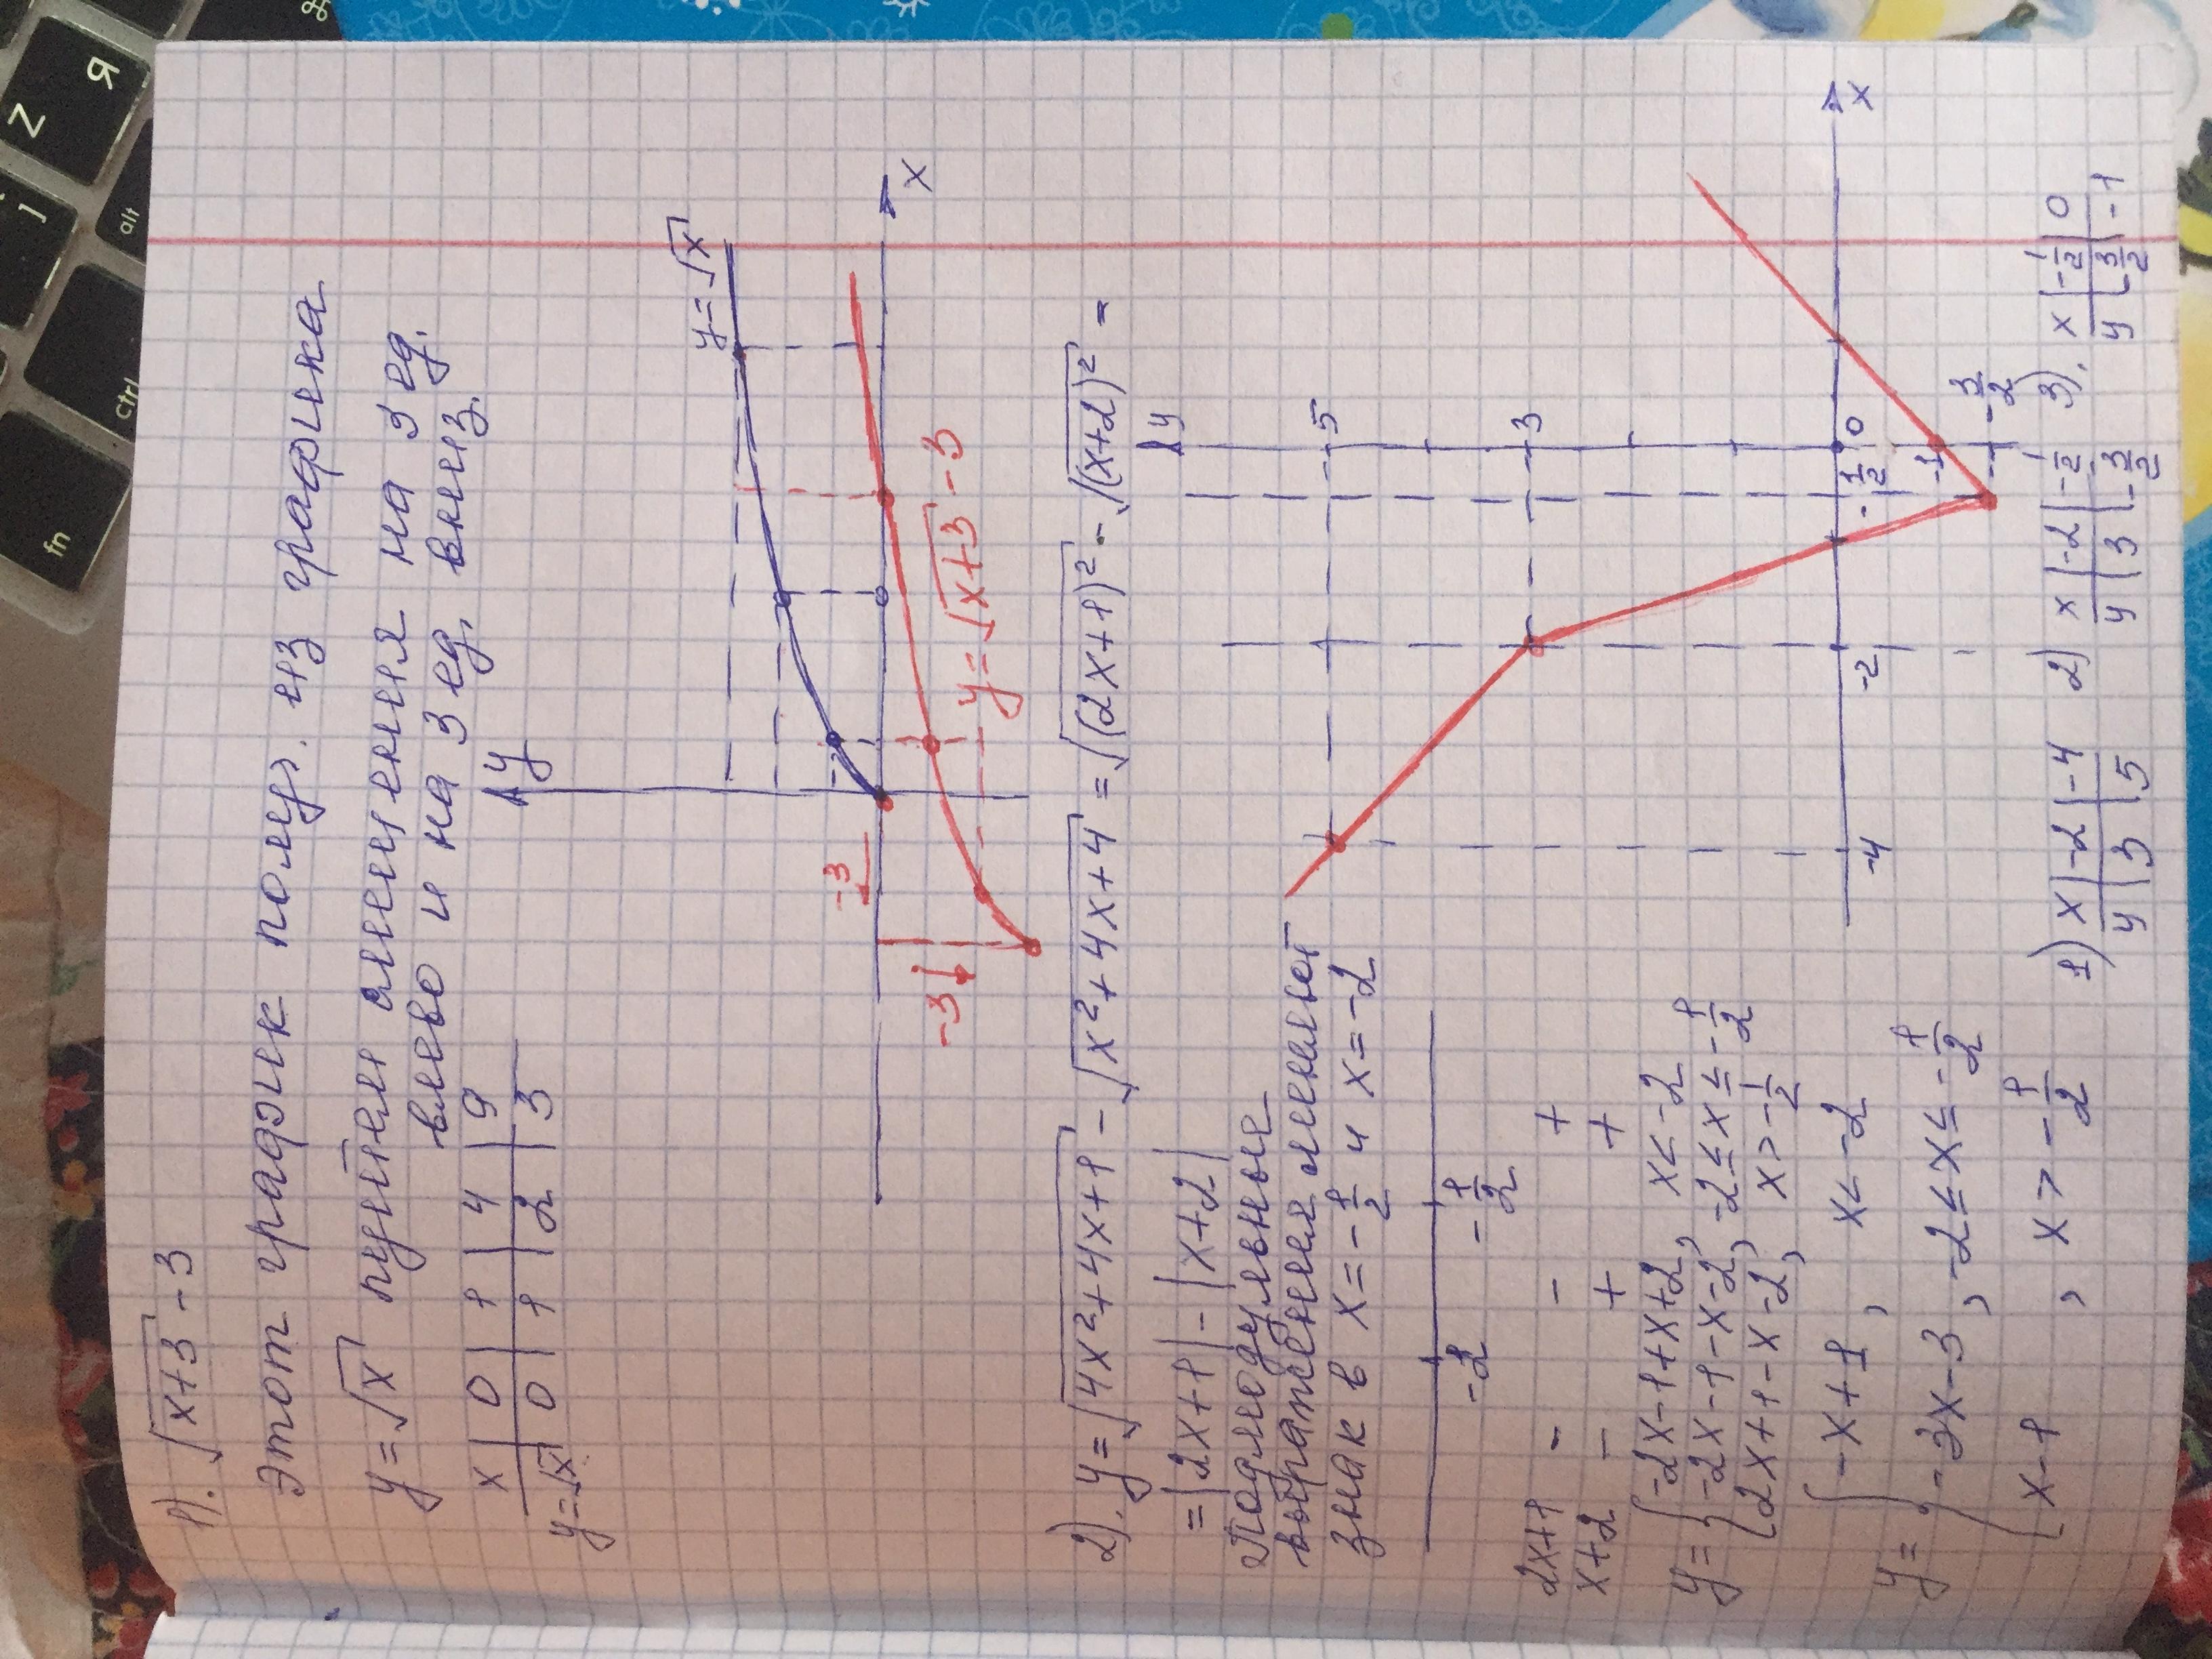 1). √x+3 - 3
Этот график получ. из графика
y = √x путём смещения на 3 ед.
влево и на 3 ед. вниз.
x | 0 | 1 | 4 | 9
y=√x | 0 | 1 | 2 | 3
y
y=√x
x
-3
-3
y=√x+3 - 3
2). y=√4x²+4x+1 - √x²+4x+4 = √(2x+1)² - √(x+2)² =
= |2x+1| - |x+2|
Подмодульные
выражения меняют
знак в x=-1/2 и x=-2
-2 -1/2
2x+1 - - +
x+2 - + +
y= { -2x-1+x+2, x<-2
-2x-1-x-2, -2≤x≤-1/2
2x+1-x-2, x>-1/2
y= { -x+1, x<-2
-3x-3, -2≤x≤-1/2
x-1, x>-1/2
y
5
3
-4 -2 -1/2 0 x
-1
-3/2
1) x | -2 | -4 2) x | -2 | -1/2 3). x | -1/2 | 0
y | 3 | 5 y | 3 | -3/2 y | -3/2 | -1
fn
ctrl
alt
Z
Я
]
⌘